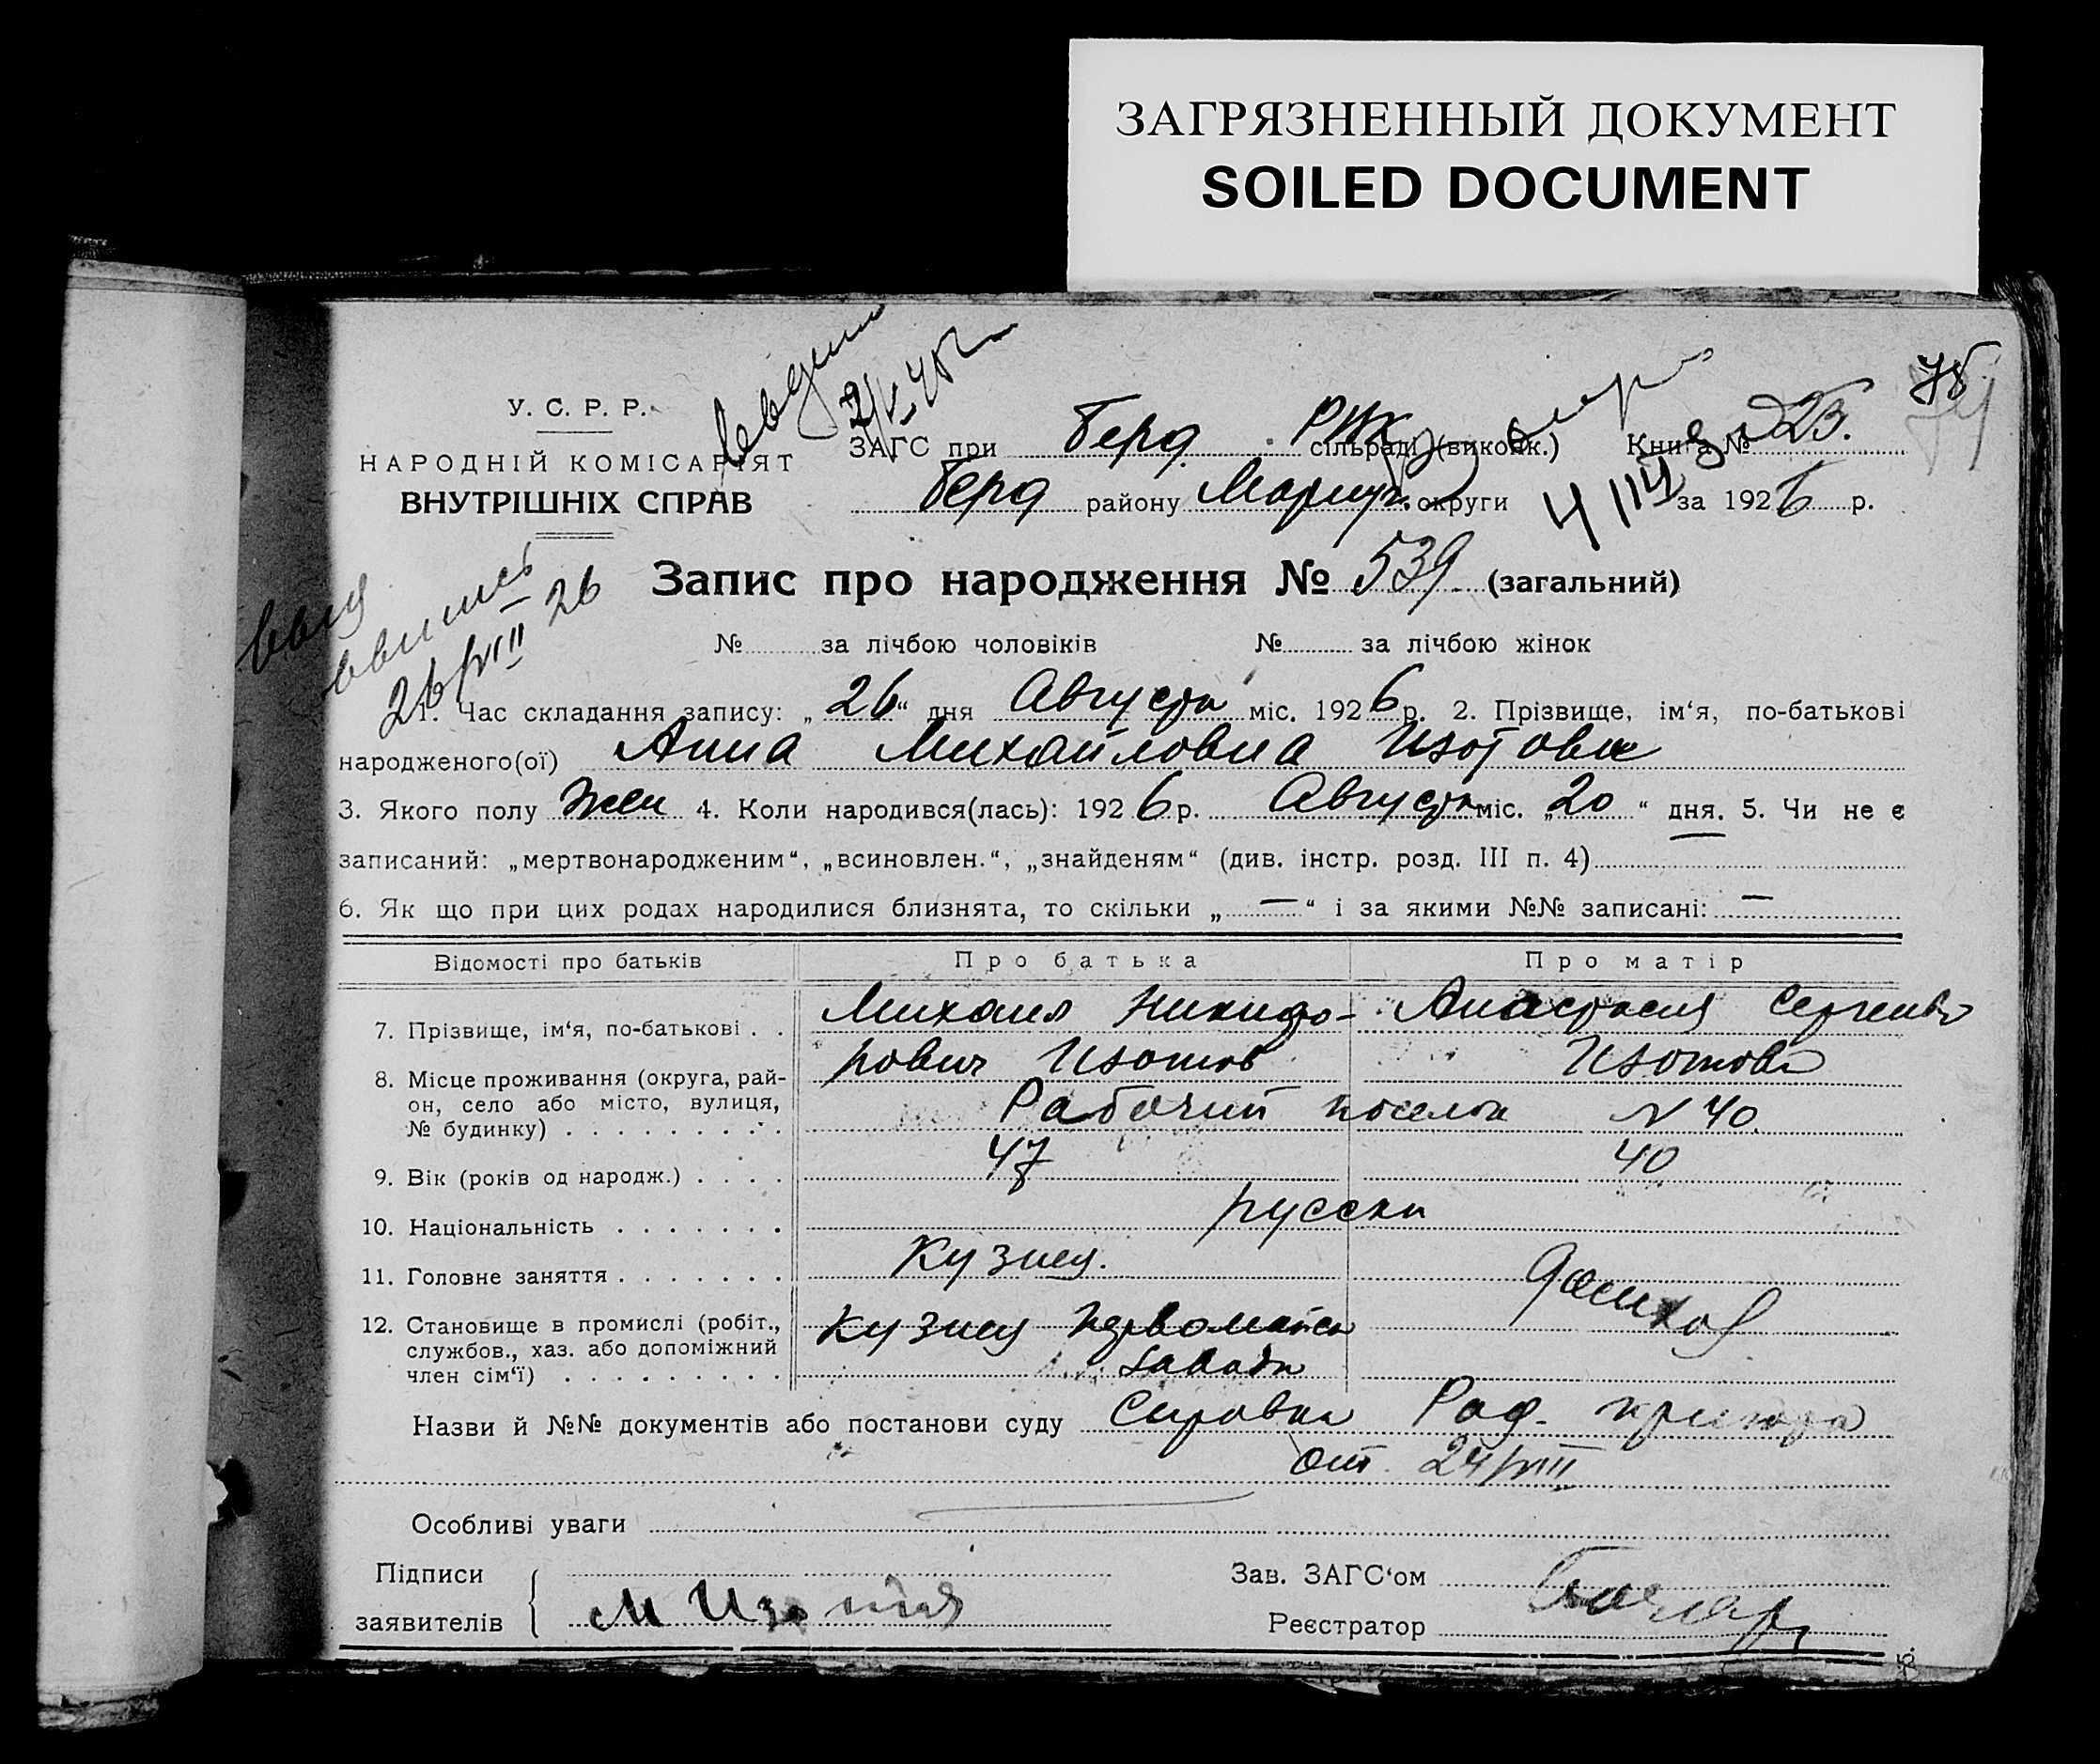 ЗАГРЯЗНЕННЫЙ ДОКУМЕНТ
SOILED DOCUMENT
78
У. С. Р. Р.
НАРОДНІЙ КОМІСАРІЯТ
ВНУТРІШНІХ СПРАВ
ЗАГС при Берд. РИК сільраді (виконк.) Книга №
Берд району Мариуп. округи за 1926 р.
Запис про народження № 539 (загальний)
26/VIII – 26
№ за лічбою чоловіків № за лічбою жінок
1. Час складання запису: „26“ дня Августа міс. 1926 р. 2. Прізвище, ім‘я, по-батькові
народженого(ої) Анна Михайловна Изотова
3. Якого полу Жен 4. Коли народився(лась): 1926 р. Августа міс. „20“ дня. 5. Чи не є
записаний: „мертвонародженим“, „всиновлен.“, „знайденям“ (див. інстр. розд. III п. 4) —
6. Як що при цих родах народилися близнята, то скільки „—“ і за якими №№ записані: —
Відомості про батьків Про батька Про матір
7. Прізвище, ім‘я, по-батькові . . Михаил Никифо- Анастасия Сергеевн
рович Изотов Изотова
8. Місце проживання (округа, рай-
он, село або місто, вулиця, Рабочий поселок N 40
№ будинку) . . . . . . . . .
9. Вік (років од народж.) . . . . 47 40
10. Національність . . . . . . . русски
11. Головне заняття . . . . . . . Кузнец.
домохоз
12. Становище в промислі (робіт., кузнец Первомайск
службов., хаз. або допоміжний завода
член сім‘ї) . . . . . . . . .
Назви й №№ документів або постанови суду Справка Род. приюта
от 24/VIII
Особливі уваги
Підписи Зав. ЗАГС‘ом
заявителів М Изотов Реєстратор